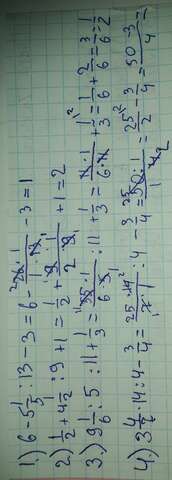 1.) 6 - 5 1/5 : 13 - 3 = 6 - 26·1/1·13 - 3 = 1
2) 1/2 + 4 1/2 : 9 + 1 = 1/2 + 9·1/2·9 + 1 = 2
3.) 9 1/6 · 5 : 11 + 1/3 = 55·1/6 : 11 + 1/3 = 11·1/6·11 + 1/3 = 1/6 + 2/6 = 3/6 = 1/2
4.) 3 4/7 · 14 : 4 - 3/4 = 25·14/7·1 : 4 - 3/4 = 50·1/1·4 = 25/2 - 3/4 = 50-3/4 =